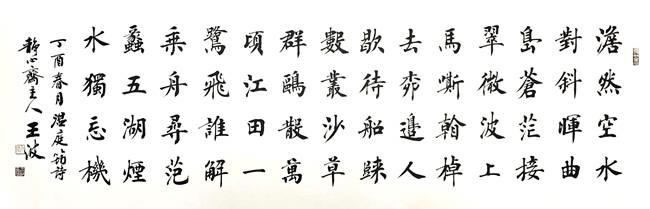 澹然空水
對斜暉曲
島蒼茫接
翠微波上
馬嘶看棹
去柳邊人
歇待船歸
數叢沙草
群鷗散萬
頃江田一
鷺飛誰解
乘舟尋范
蠡五湖煙
水獨忘機
丁酉春月溫庭筠詩
靜心齋主人王波